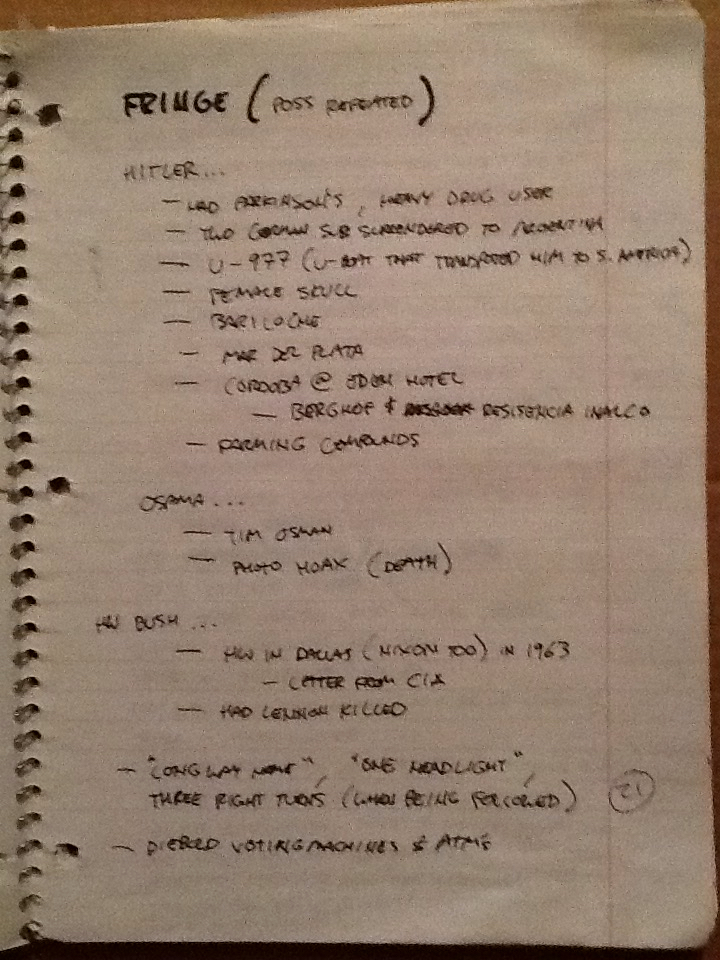 FRINGE (POSS REPEATED)
HITLER...
— HAD PARKINSON'S, HEAVY DRUG USER
— TWO GERMAN SUB SURRENDERED TO ARGENTINA
— U-977 (U-BOAT THAT TRANSPORTED HIM TO S. AMERICA)
— FEMALE SKULL
— BARILOCHE
— MAR DEL PLATA
— CORDOBA @ EDEN HOTEL
— BERGHOF & RESISENCIA INALCO
— FARMING COMPOUNDS
OSAMA...
— TIM OSMAN
— PHOTO HOAX (DEATH)
HW BUSH...
— HW IN DALLAS (NIXON TOO) IN 1963
— LETTER FROM CIA
— HAD LENNON KILLED
— "LONG WAY HOME", "ONE HEADLIGHT",
THREE RIGHT TURNS (WHEN BEING FOLLOWED)
21
— DIEBOLD VOTING MACHINES & ATMS